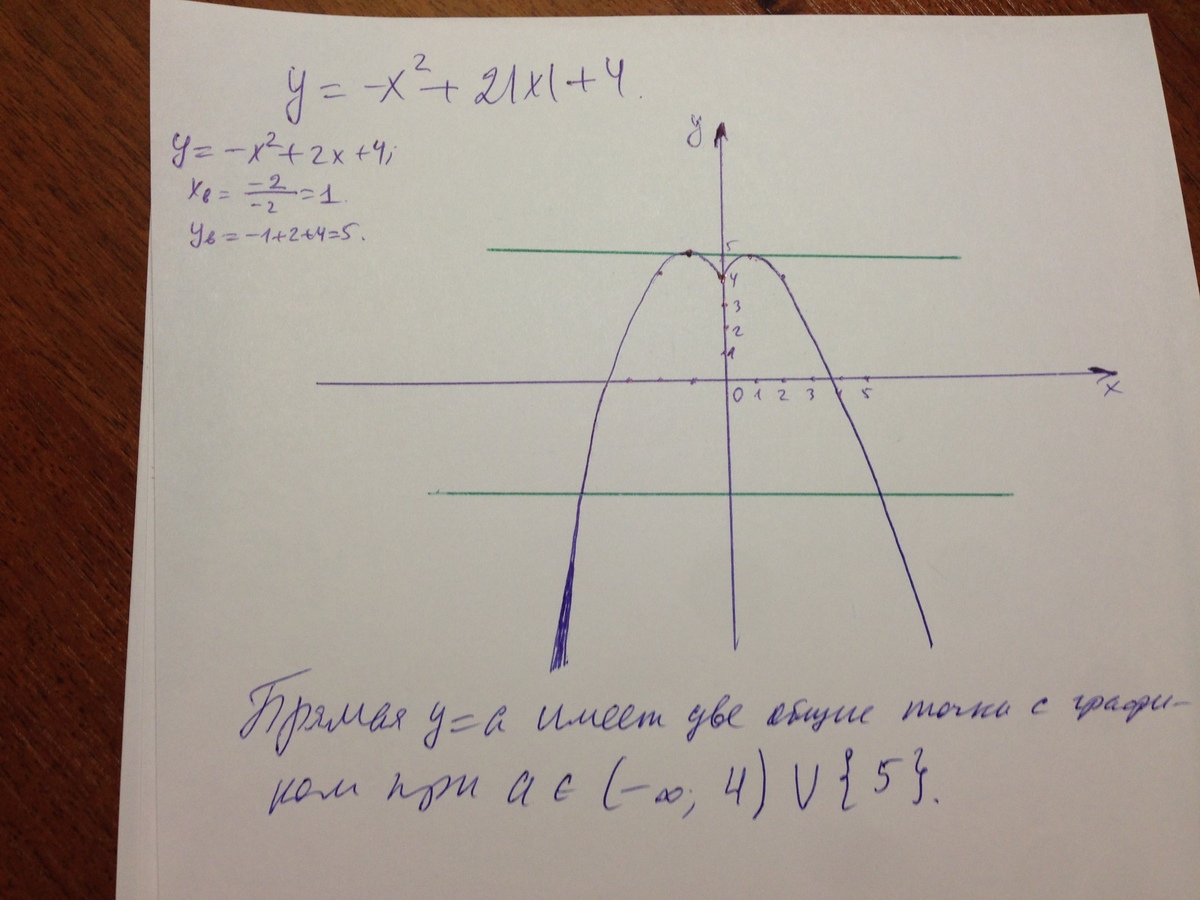 y = -x² + 2|x| + 4.
y = -x² + 2x + 4;
xв = -2/-2 = 1.
yв = -1+2+4=5.
y
5
4
3
2
1
0 1 2 3 4 5
x
Прямая y = a имеет две общие точки с графи-
ком при a ∈ (-∞; 4) ∪ {5}.